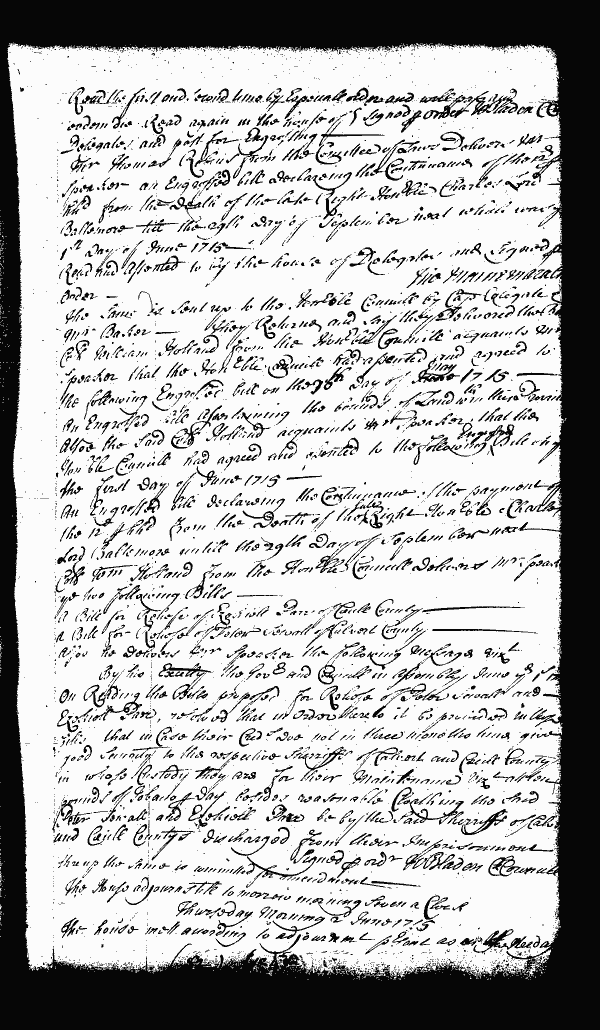 Read the first and second time by Especiall order and will pass
ordered Read again in the house of Signed p order WBladen Cl
Delegates and past for Engrossing
Mr Thomas Robins from the Comittee of Laws Delivers Mr
Speaker an Engrossed bill declaring the Continuance of the
hhd from the Death of the late Right Honble Charles Lord
Baltemore till the 29th day of September next which was
1st day of June 1715
Read and Assented to by the house of Delegates and Signed p
order
The Same is sent up to the Honble Councill by
Mr Baker They Returne and say they Delivered the
Coll William Holland from the Honble Councill acquaints Mr
Speaker that the Honble Councill had assented and agreed to
the following Engrossed bill on the day of 1715
An Engrossed bill Ascertaining the bounds of Land
Alsoe the Said Coll Holland acquaints Mr Speaker that the
Honble Councill had agreed and assented to the following Engrossed Bill
the first day of June 1715
An Engrossed bill declareing the Continuance of the payment of
the 12d p hhd from the Death of the late Right Honble Charles
Lord Baltemore untill the 29th Day of September next
Coll Wm Holland from the Honble Councill Delivers Mr Speak
ye two following Bills
a Bill for Release of Ezekiell Pare of Cecill County
a Bill for Release of Peter Sewall of Calvert County
Alsoe he delivers Mr Speaker the following Message vizt
By his the Govr and Councill in Assembly June ye 1st
On Reading the Bills proposed for Release of Peter Sewall and
Ezekiell Pare, resolved that in Order thereto it be provided in
Bills, that in Case their Credrs doe not in three months time give
good Security to the respective Sherriffs of Calvert and Cecill County
in whose Custody they are for their Maintenance vizt
pounds of Tobacco p Day besides reasonable Cloathing the Said
Peter Sewall and Ezekiell Pare be by the Said Sherriffs of
and Cecill Countys discharged from their Imprisonment
Signed p ordr WBladen Cl Councill
the same is for amendment
The House adjourns till to morrow morning Seven a Clock
Thursday Morning 2d June 1715
The house mett according to adjournmt p sent as